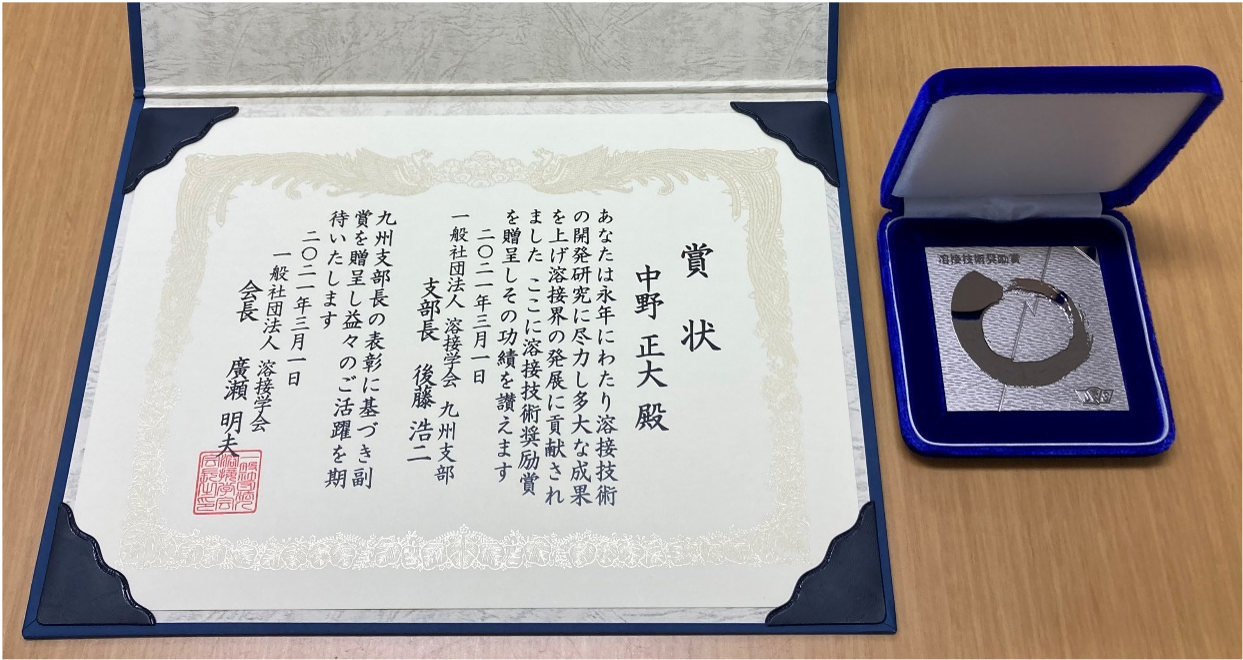 賞状
中野 正大 殿
あなたは永年にわたり溶接技術
の開発研究に尽力し多大な成果
を上げ溶接界の発展に貢献され
ました ここに溶接技術奨励賞
を贈呈しその功績を讃えます
二〇二一年三月一日
一般社団法人 溶接学会 九州支部
支部長 後藤 浩二
九州支部長の表彰に基づき副
賞を贈呈し益々のご活躍を期
待いたします
二〇二一年三月一日
一般社団法人 溶接学会
会長 廣瀬 明夫
溶接技術奨励賞